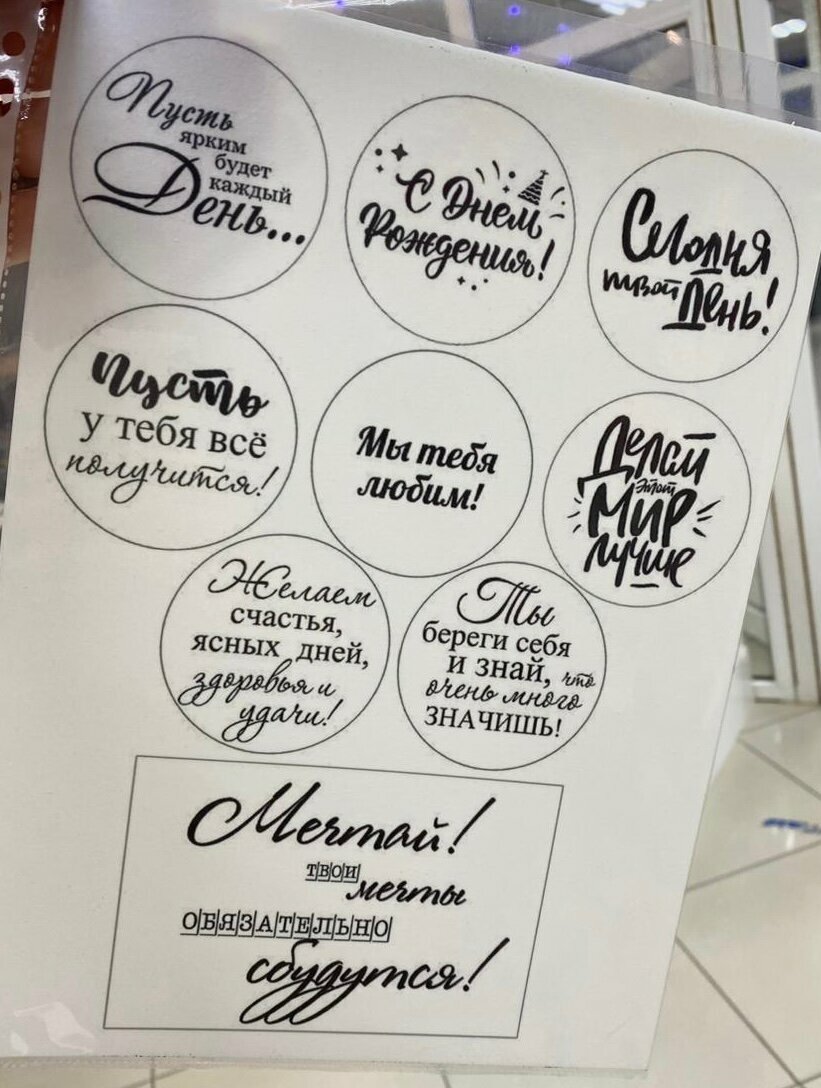 Пусть
ярким
будет
каждый
День...
С Днем
Рождения!
Сегодня
твой День!
Пусть
у тебя всё
получится!
Мы тебя
любим!
Делай
этот
Мир
лучше
Желаем
счастья,
ясных дней,
здоровья и
удачи!
Ты
береги себя
и знай, что
очень много
ЗНАЧИШЬ!
Мечтай!
ТВОИ
мечты
ОБЯЗАТЕЛЬНО
сбудутся!